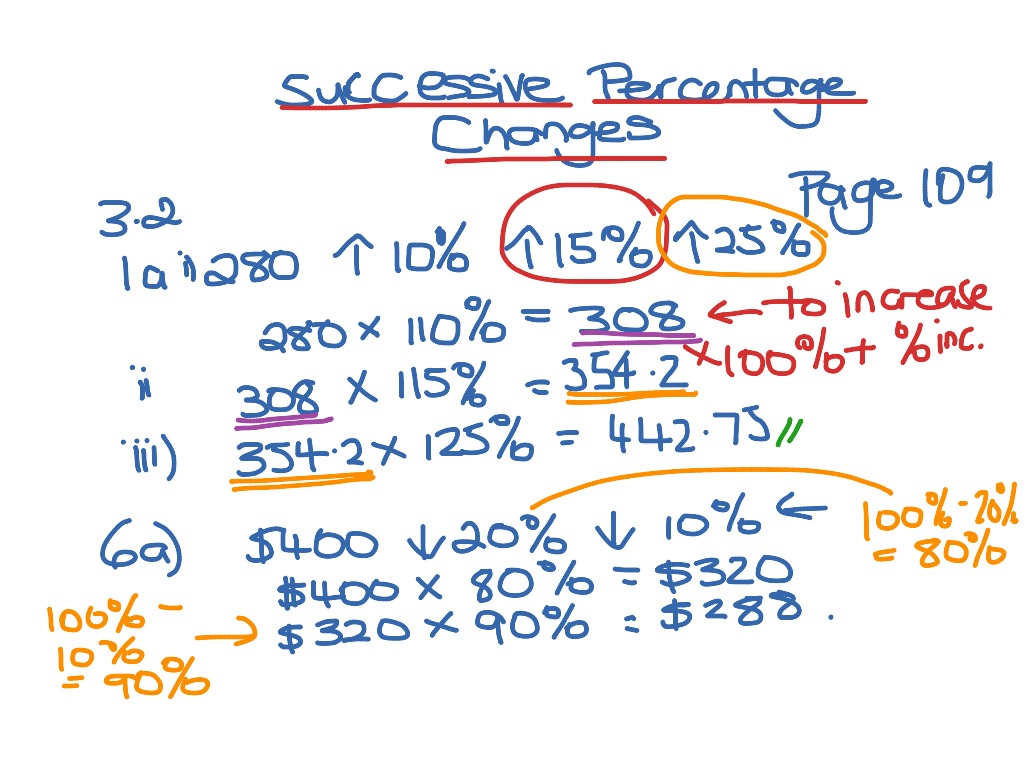 Successive Percentage
Changes
Page 109
3.2
1a i) 280 ↑ 10% ↑ 15% ↑ 25%
280 × 110% = 308 ← to increase
×100% + % inc.
ii 308 × 115% = 354.2
iii) 354.2 × 125% = 442.75 //
6a) $400 ↓ 20% ↓ 10% ←
100% - 20%
= 80%
$400 × 80% = $320
$320 × 90% = $288.
100% -
10%
= 90% →